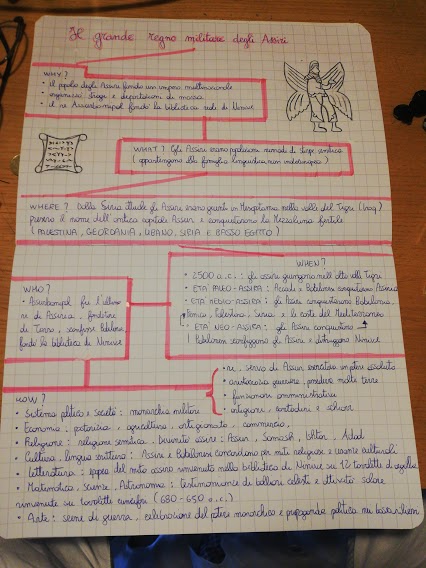 Il grande regno militare degli Assiri
WHY?
• il popolo degli Assiri fondò un impero multinazionale
• organizzò stragi e deportazioni di massa
• il re Assurbanipal fondò la biblioteca reale di Ninive
WHAT? Gli Assiri erano popolazioni nomadi di stirpe semitica
(appartengono alla famiglia linguistica non indoeuropea)
WHERE? Dalla Siria attuale gli Assiri erano giunti in Mesopotamia nella valle del Tigri (Iraq)
presero il nome dell'antica capitale Assur e conquistarono la Mezzaluna fertile
(PALESTINA, GIORDANIA, LIBANO, SIRIA E BASSO EGITTO)
WHEN?
• 2500 a.c.: gli assiri giungono nell'alta valle Tigri
• ETÀ PALEO-ASSIRA: Accadi e Babilonesi conquistarono Assiria
• ETÀ MEDIO-ASSIRA: gli Assiri conquistarono Babilonia,
Fenicia, Palestina, Siria e le coste del Mediterraneo
• ETÀ NEO-ASSIRA: gli Assiri conquistano
I Babilonesi sconfiggono gli Assiri e distruggono Ninive
WHO?
• Assurbanipal fu l'ultimo
re di Assiria,
fondò la biblioteca di Ninive
HOW?
• Sistema politico e società: monarchia militare
• re, servo di Assur, esercitava un potere assoluto
• aristocrazia guerriera, possiede molte terre
• funzionari amministrativi
• artigiani, contadini e schiavi
• Economia: pastorizia, agricoltura, artigianato, commercio,
• Religione: religione semitica. Divinità assire: Assur, Samash, Ishtar, Adad
• Cultura, lingua scrittura: Assiri e Babilonesi concordano per miti religiosi e usanze culturali
• Letteratura: epopea del mito assiro rinvenuta nella biblioteca di Ninive su 12 tavolette di argilla
• Matematica, Scienze, Astronomia: testimonianze di bollori celesti e attività solare
rinvenute su tavolette cuneiformi (680-650 a.c.)
• Arte: scene di guerra, celebrazione del potere monarchico e propaganda politica nei bassorilievi